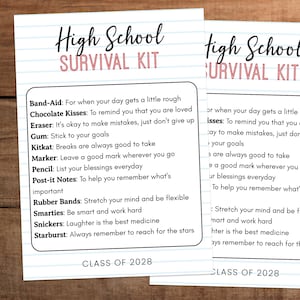 High School
SURVIVAL KIT
Band-Aid: For when your day gets a little rough
Chocolate Kisses: To remind you that you are loved
Eraser: It's okay to make mistakes, just don't give up
Gum: Stick to your goals
Kitkat: Breaks are always good to take
Marker: Leave a good mark wherever you go
Pencil: List your blessings everyday
Post-it Notes: To help you remember what's
important
Rubber Bands: Stretch your mind and be flexible
Smarties: Be smart and work hard
Snickers: Laughter is the best medicine
Starburst: Always remember to reach for the stars
CLASS OF 2028
High School
SURVIVAL KIT
your day gets a little rough
: To remind you that you are
to make mistakes, just don't give
our goals
are always good to take
a good mark wherever you
blessings everyday
To help you remember what'
: Stretch your mind and be
smart and work hard
ghter is the best medicine
ays remember to reach for
CLASS OF 2028